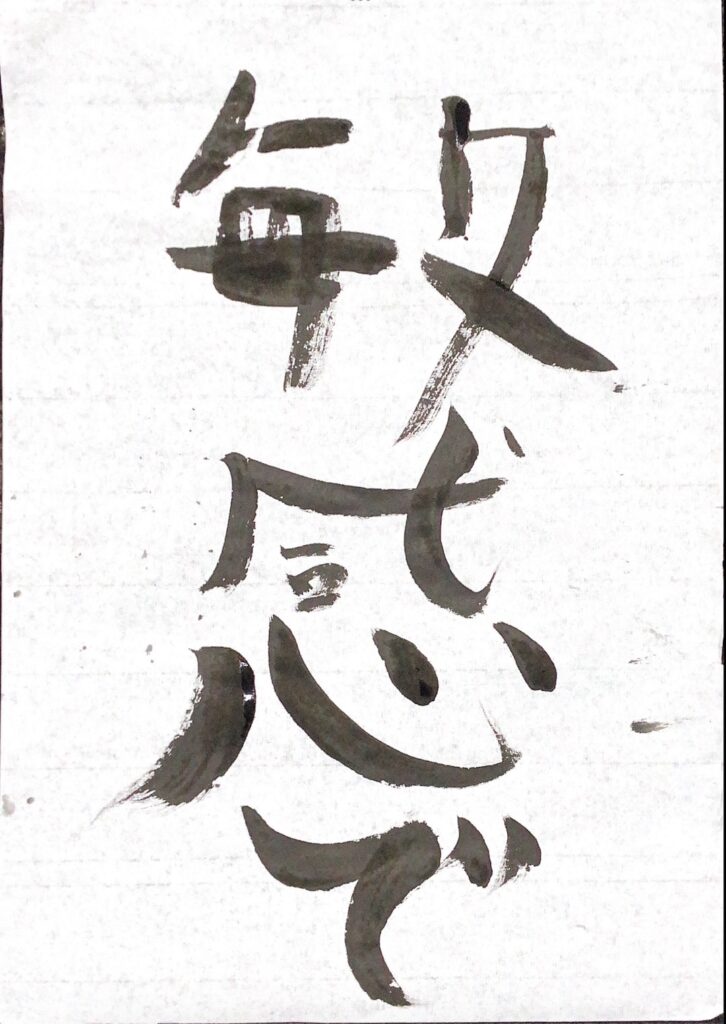 敏感で